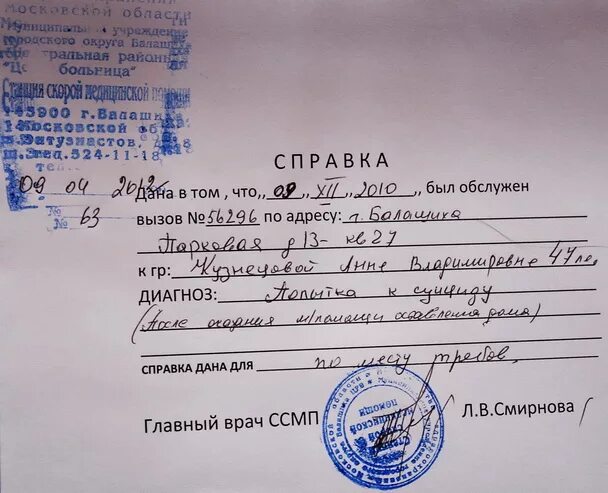 Московской области
Муниципальное учреждение
городского округа Балашиха
"Центральная районная
больница"
Станция скорой медицинской помощи
143900 г.Балашиха
Московской об
Энтузиастов,
524-11-18
09 04 2012
№ 63
СПРАВКА
Дана в том , что,, 09 ,, XII ,, 2010 ,, был обслужен
вызов №56296 по адресу: г. Балашиха
Парковая д 13- кв 27
к гр: Кузнецовой Анне Владимировне 47 лет
ДИАГНОЗ: Попытка к суициду
(После оказания м/помощи оставлена дома)
СПРАВКА ДАНА ДЛЯ по месту требов.
Главный врач ССМП Л.В.Смирнова